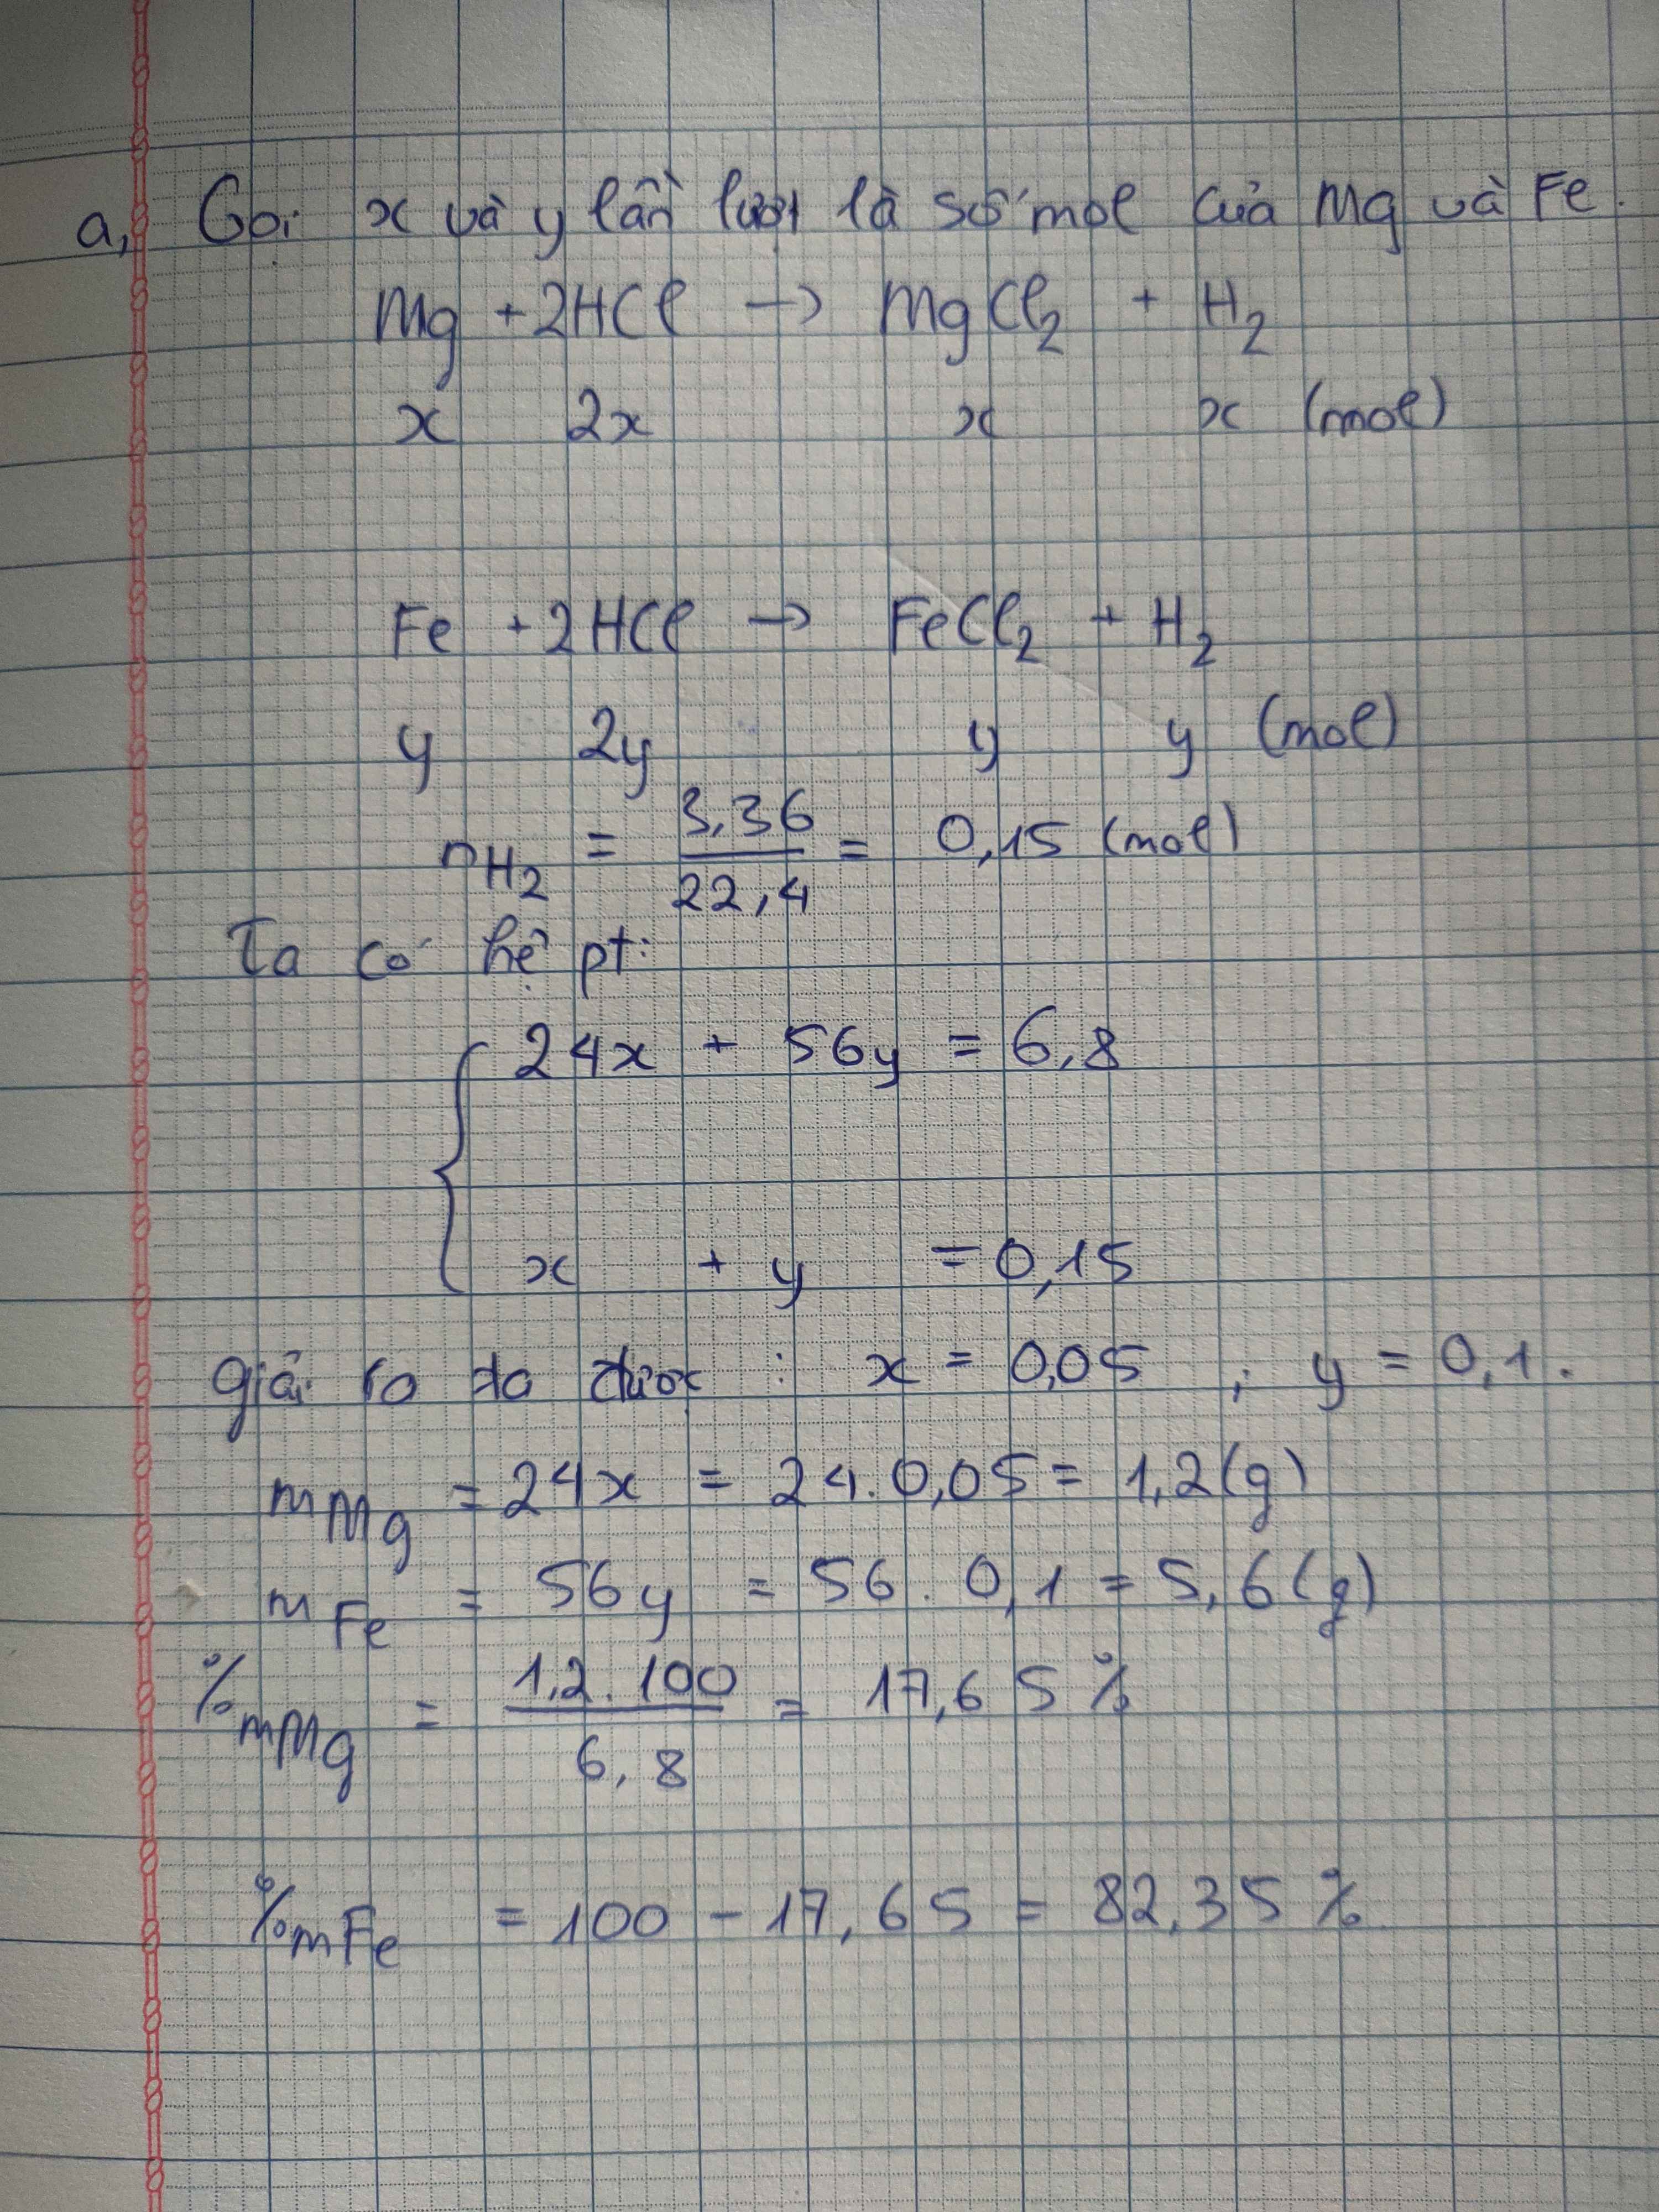 a, Gọi x và y lần lượt là số mol của Mg và Fe.
Mg + 2HCl → MgCl₂ + H₂
x 2x x x (mol)
Fe + 2HCl → FeCl₂ + H₂
y 2y y y (mol)
nH₂ = 3,36/22,4 = 0,15 (mol)
Ta có hệ pt:
{ 24x + 56y = 6,8
x + y = 0,15
Giải ra ta được : x = 0,05 ; y = 0,1.
mMg = 24x = 24.0,05 = 1,2(g)
mFe = 56y = 56.0,1 = 5,6(g)
%mMg = 1,2.100/6,8 = 17,65%
%mFe = 100 - 17,65 = 82,35%